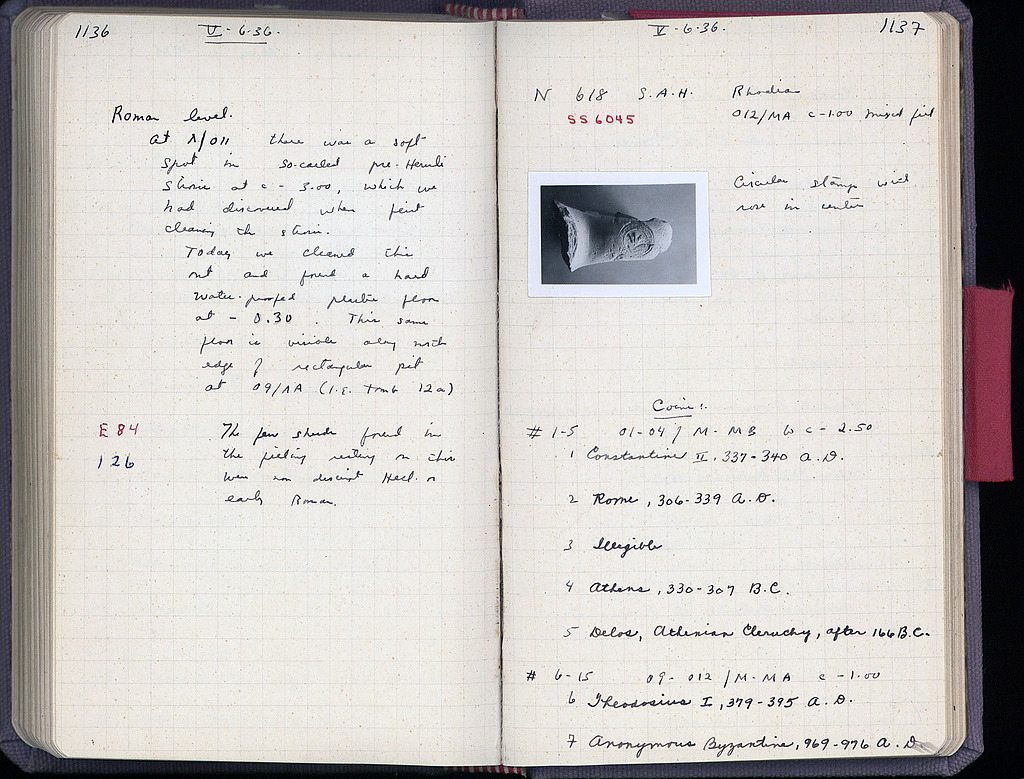 1136
V-6-36.
Roman level.
At Λ/011 there was a soft
spot in so-called pre-Heruli
at c - 3.00, which we
had discovered when first
cleaning the
Today we cleaned this
out and found a hard
water-proofed plaster floor
at - 0.30. This same
floor is visible along north
edge of rectangular pit
at 09/ΛA (I.E. tomb 12a)
E 84
126
The few sherds found in
the resting on this
were Hell. or
early Roman.
1137
V-6-36.
N 618 S.A.H. Rhodian
SS 6045
012/MA c-1.00 mixed fill
Circular stamp with
rose in center
Coins:
# 1-5 01-04/M-MB c - 2.50
1 Constantine II, 337-340 A.D.
2 Rome, 306-339 A.D.
3 Illegible
4 Athens, 330-307 B.C.
5 Delos, Athenian Cleruchy, after 166 B.C.
# 6-15 09-012/M-MA c -1.00
6 Theodosius I, 379-395 A.D.
7 Anonymous Byzantine, 969-976 A.D.